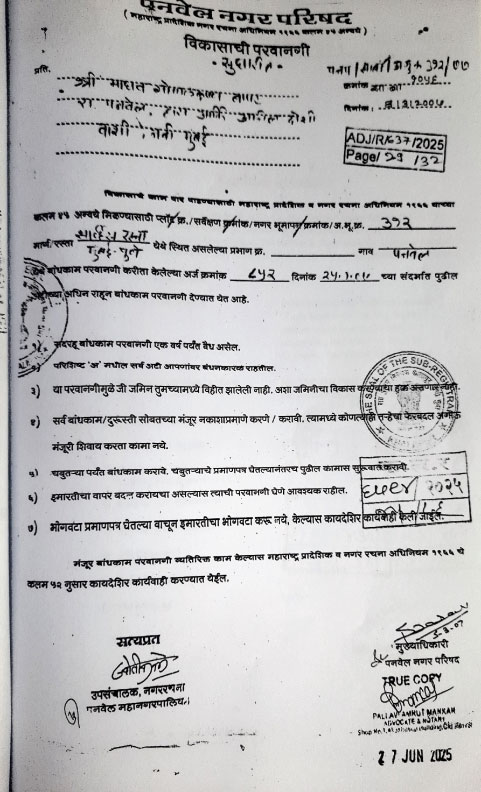 पनवेल नगर परिषद
( महाराष्ट्र प्रादेशिक नगर रचना अधिनियम १९६६ कलम ४५ अन्वये )
विकासाची परवानगी
- सुधारीत -
प्रति.
क्रमांक
दिनांक.
श्री माधव
रा. पनवेल,
वाशी, नवी मुंबई
ADJ/R/637/2025
Page/ 29 / 32
विकासाचे काम पार पाडण्यासाठी महाराष्ट्र प्रादेशिक व नगर रचना अधिनियम १९६६ याच्या
कलम ४५ अन्वये मिळण्यासाठी प्लॉट क्र./सर्वेक्षण क्रमांक/नगर भूमापन क्रमांक/अ.भू.क्र. 392
मार्ग/रस्ता मुंबई-पुणे येथे स्थित असलेल्या प्रमाण क्र. गाव पनवेल
बांधकाम परवानगी करीता केलेल्या अर्ज क्रमांक ८५२ दिनांक च्या संदर्भात पुढील
अधिन राहून बांधकाम परवानगी देण्यात येत आहे.
सदरहू बांधकाम परवानगी एक वर्ष पर्यंत वैध असेल.
परिशिष्ट 'अ' मधील सर्व अटी आपणांवर बंधनकारक राहतील.
३) या परवानगीमुळे जी जमिन तुमच्यामध्ये विहीत झालेली नाही. अशा जमिनीचा विकास करण्याचा हक्क असणार नाही.
४) सर्व बांधकाम/दुरूस्ती सोबतच्या मंजूर नकाशाप्रमाणे करणे / करावी. त्यामध्ये कोणत्याही तऱ्हेचा फेरबदल अगाऊ
मंजूरी शिवाय करता कामा नये.
५) चबुतऱ्या पर्यंत बांधकाम करावे. चबुतऱ्याचे प्रमाणपत्र घेतल्यानंतरच पुढील कामास सुरूवात करावी.
६) इमारतीचा वापर बदल करायचा असल्यास त्याची परवानगी घेणे आवश्यक राहील.
७) भोगवटा प्रमाणपत्र घेतल्या वाचून इमारतीचा भोगवटा करू नये, केल्यास कायदेशिर कार्यवाही केली जाईल.
THE SEAL OF THE SUB-REGISTRAR
/ २०२५
मंजूर बांधकाम परवानगी व्यतिरिक्त काम केल्यास महाराष्ट्र प्रादेशिक व नगर रचना अधिनियम १९६६ चे
कलम ५२ नुसार कायदेशिर कार्यवाही करण्यात येईल.
सत्यप्रत
उपसंचालक, नगररचना
पनवेल महानगरपालिका
मुख्याधिकारी
पनवेल नगर परिषद
TRUE COPY
PALLAVI AMRUT MANKAM
ADVOCATE & NOTARY
27 JUN 2025